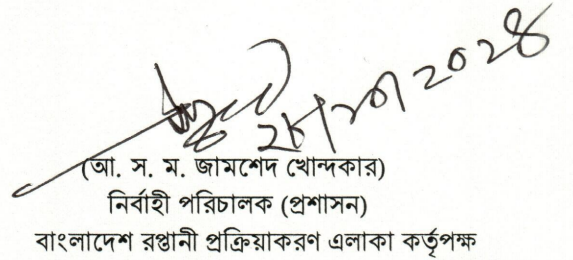 ২০২৪
(আ. স. ম. জামশেদ খোন্দকার)
নির্বাহী পরিচালক (প্রশাসন)
বাংলাদেশ রপ্তানী প্রক্রিয়াকরণ এলাকা কর্তৃপক্ষ